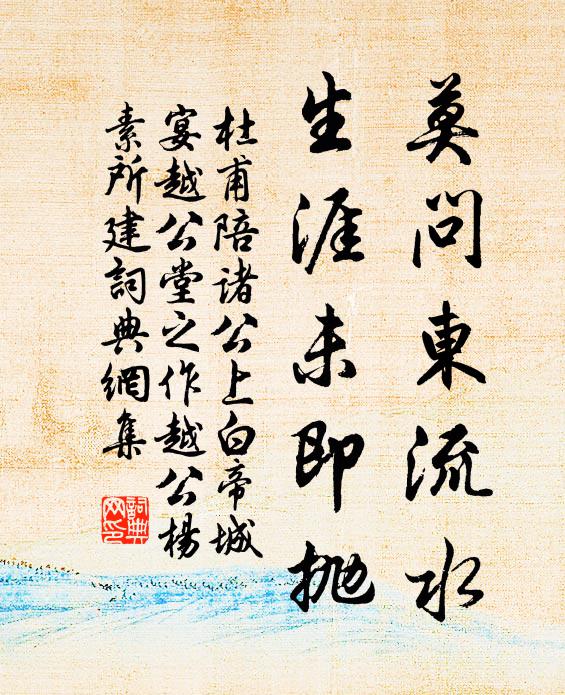 莫问東流水
生涯未即抛
杜甫陪诸公上白帝城
宴越公堂之作越公楊
素所建詞典網集
詞典網印